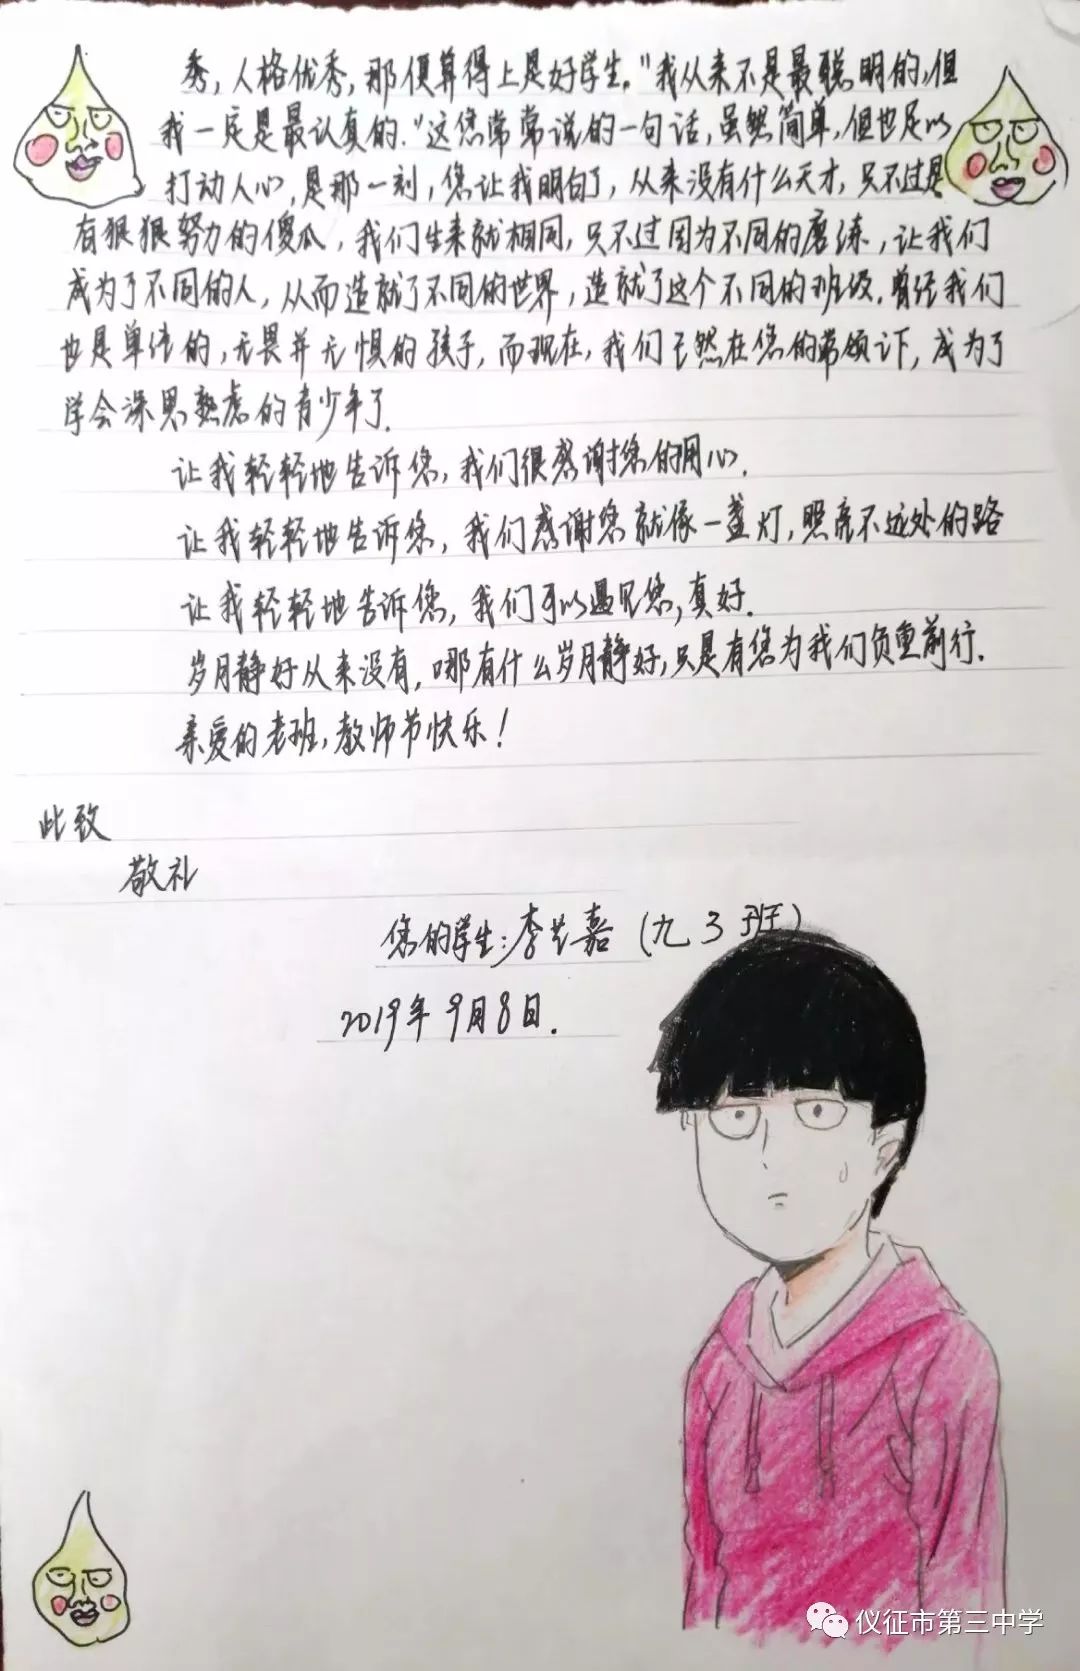 秀，人格优秀，那便算得上是好学生。"我从来不是最聪明的，但
我一定是最认真的."这您常常说的一句话，虽然简单，但也足以
打动人心，是那一刻，您让我明白了，从来没有什么天才，只不过是
有狠狠努力的傻瓜，我们生来就相同，只不过因为不同的磨练，让我们
成为了不同的人，从而造就了不同的世界，造就了这个不同的班级.曾经我们
也是单纯的，无畏并无惧的孩子，而现在，我们已然在您的带领下，成为了
学会深思熟虑的青少年了.
让我轻轻地告诉您，我们很感谢您的用心.
让我轻轻地告诉您，我们感谢您就像一盏灯，照亮不远处的路
让我轻轻地告诉您，我们可以遇见您，真好.
岁月静好从来没有，哪有什么岁月静好，只是有您为我们负重前行.
亲爱的老班，教师节快乐！
此致
敬礼
您的学生：李艺嘉（九3班）
2019年9月8日.
仪征市第三中学